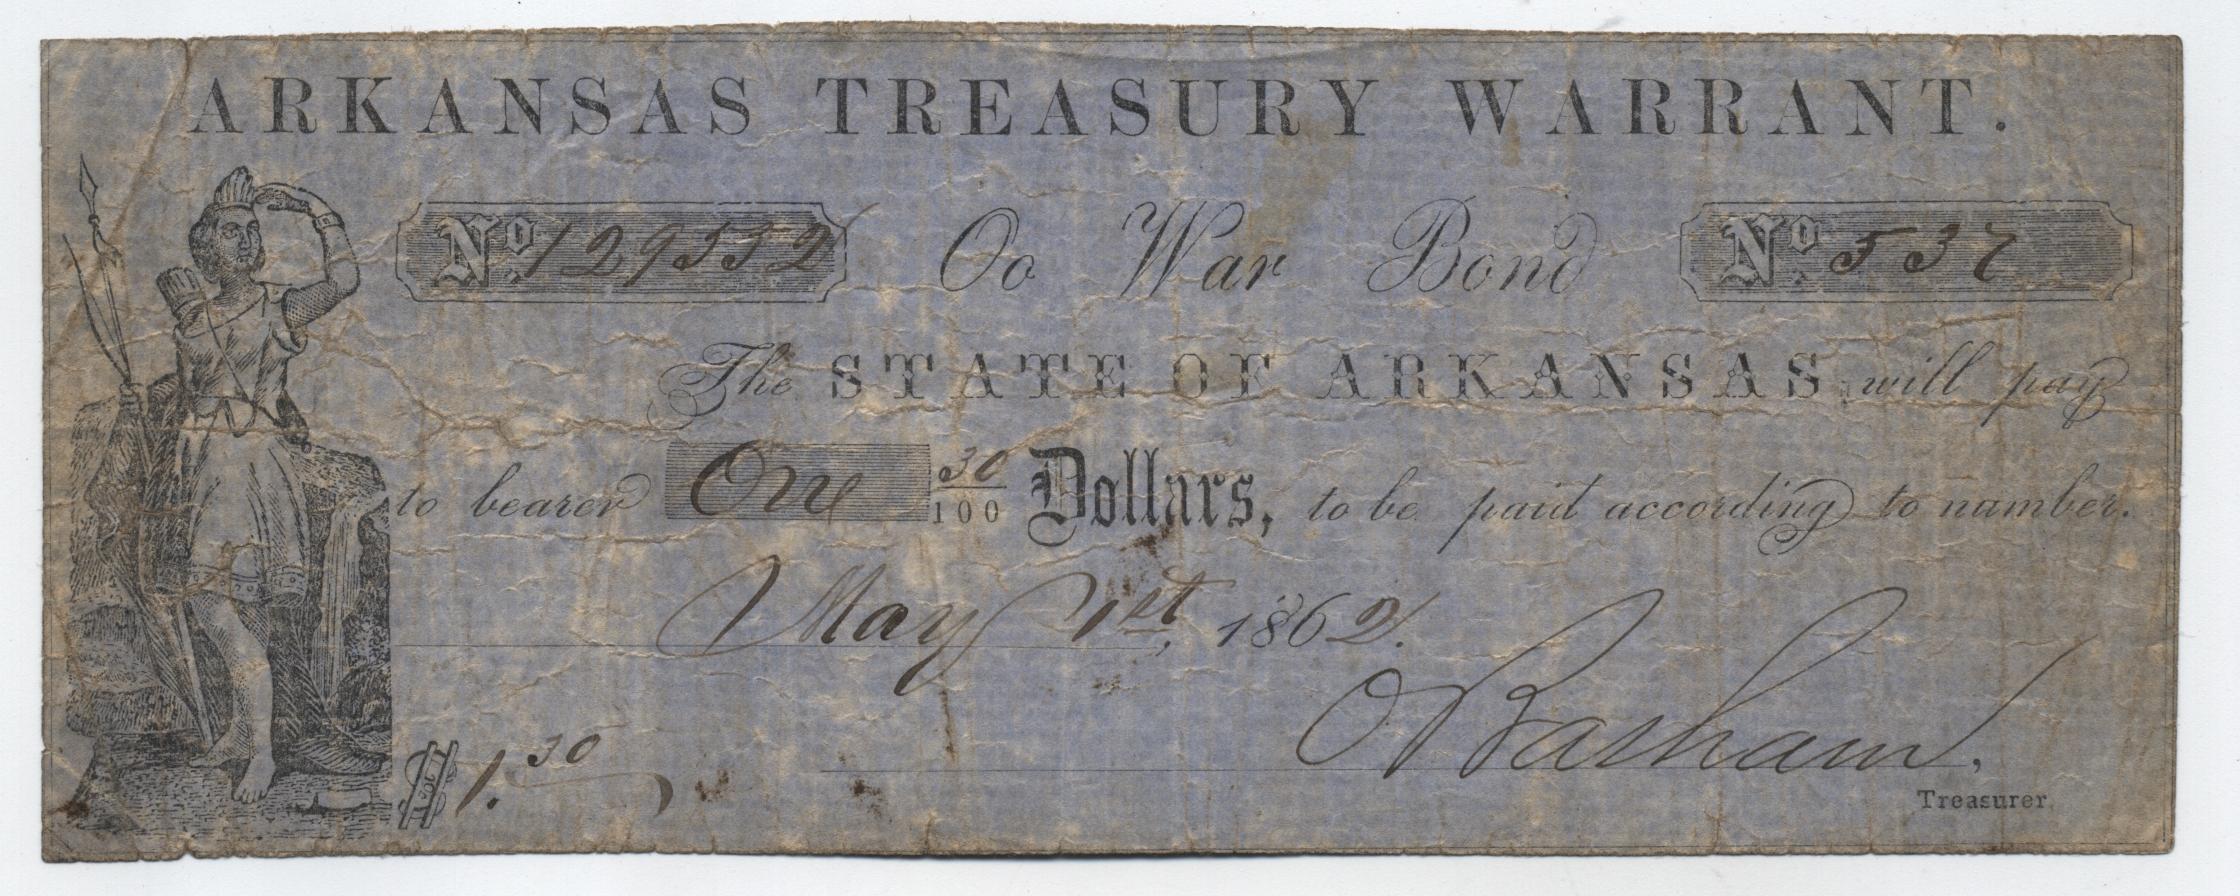 ARKANSAS TREASURY WARRANT.
No. 129552 On War Bond No. 537
The STATE OF ARKANSAS will pay
to bearer One 30/100 Dollars, to be paid according to number.
May 1st, 1862.
O Basham,
$1.30
Treasurer